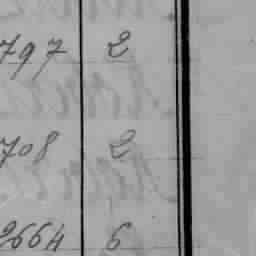 797 2
708 2
2664 6